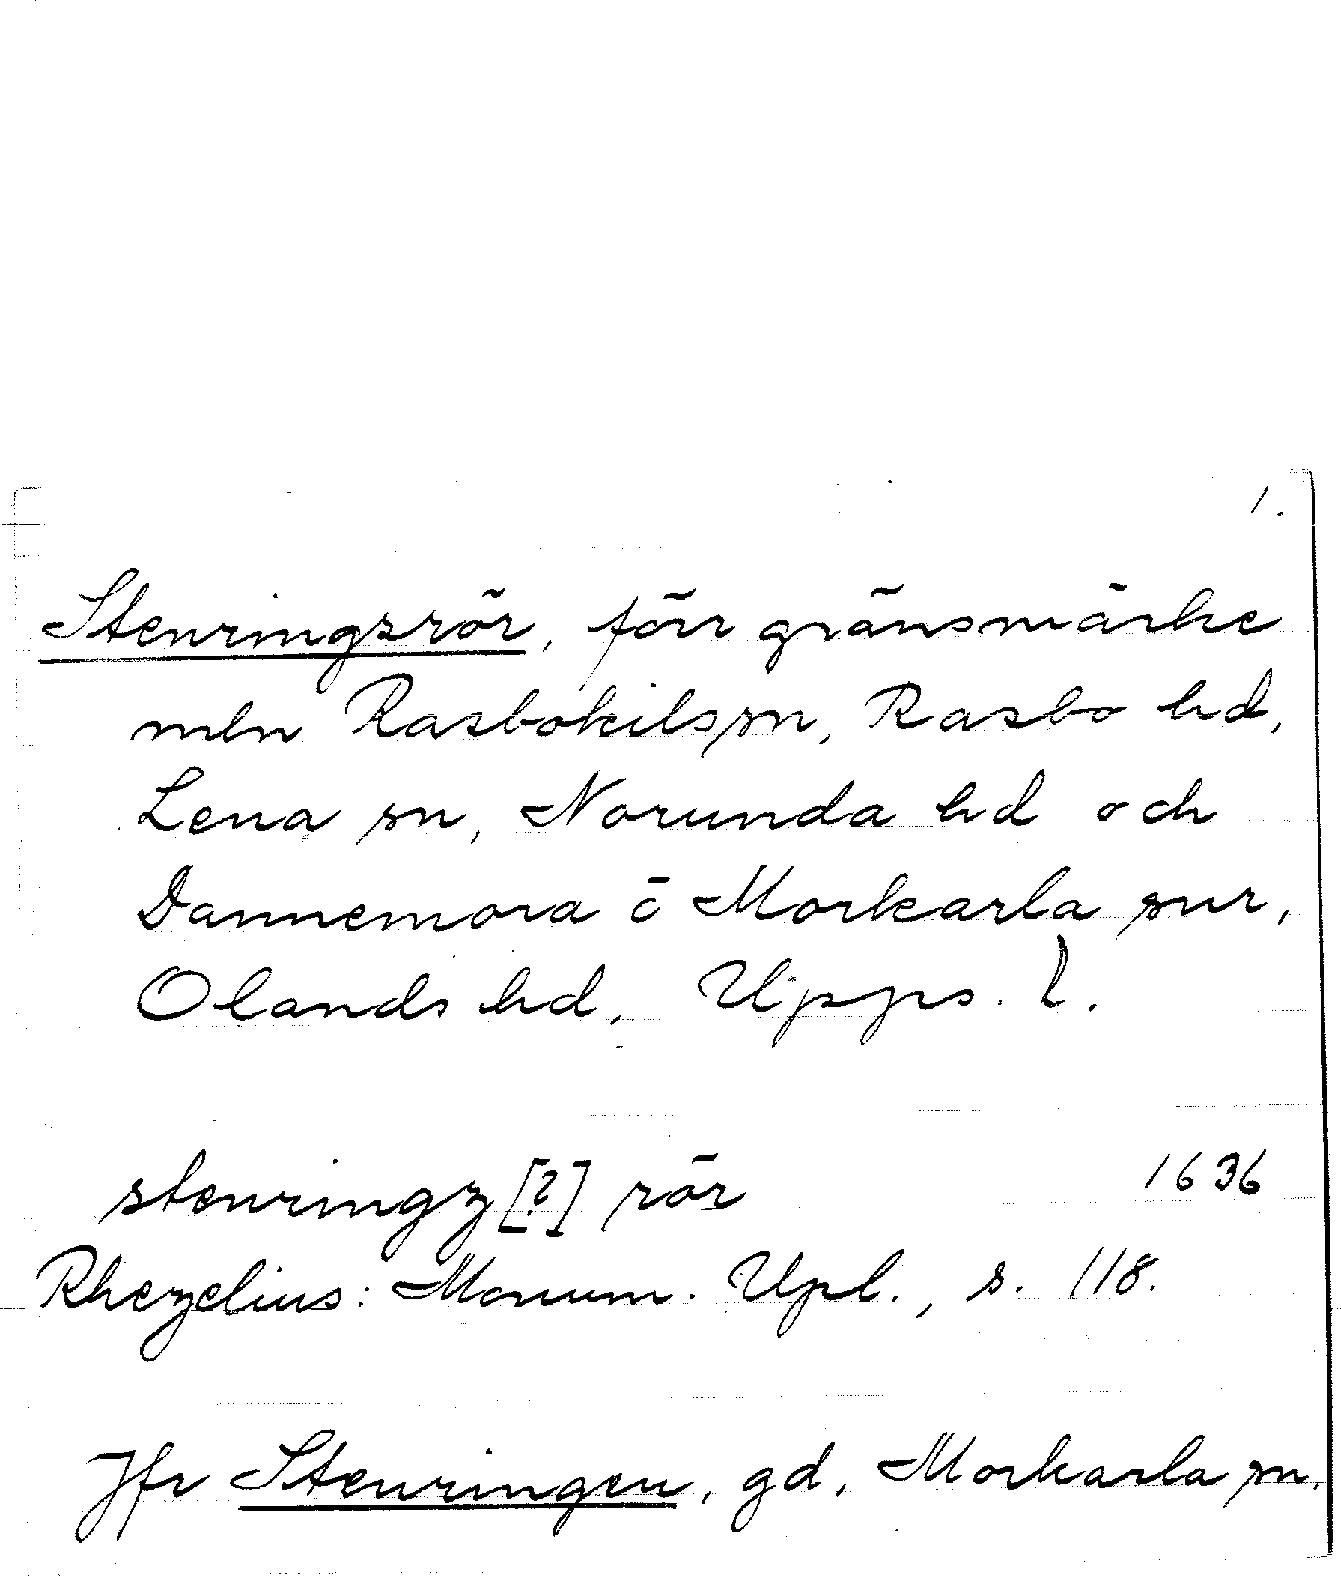 1.
Stenringsrör, förr gränsmärke
mln Rasbokils sn, Rasbo hd,
Lena sn, Norunda hd och
Dannemora o Morkarla snr,
Olands hd, Upps. l.
stenringz [?] rör 1636
Rhezelius: Monum. Upl., s. 118.
Jfr Stenringen, gd, Morkarla sn.